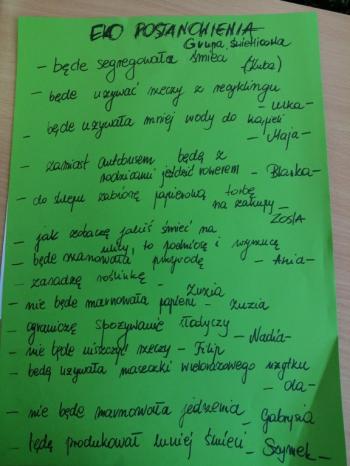 EKO POSTANOWIENIA
Grupa świetlicowa
- będę segregowała śmieci
(Zuba)
- będę używać rzeczy z recyklingu
- Lilka -
- będę używała mniej wody do kąpieli
- Maja -
- zamiast autobusem będę z
rodzicami jeździć rowerem - Blanka -
- do sklepu zabiorę papierową torbę
na zakupy -
ZOSIA
- jak zobaczę jakiś śmieć na
ulicy, to podniosę i wyrzucę
- będę szanowała przyrodę - Ania -
- zasadzę roślinkę - Zuzia
- nie będę marnowała papieru - Zuzia
- ograniczę spożywanie słodyczy
- Nadia -
- nie będę niszczyć rzeczy - Filip
- będę używała maseczki wielorazowego użytku
- Ola -
- nie będę marnowała jedzenia - Gabrysia
- będę produkował mniej śmieci - Szymek -